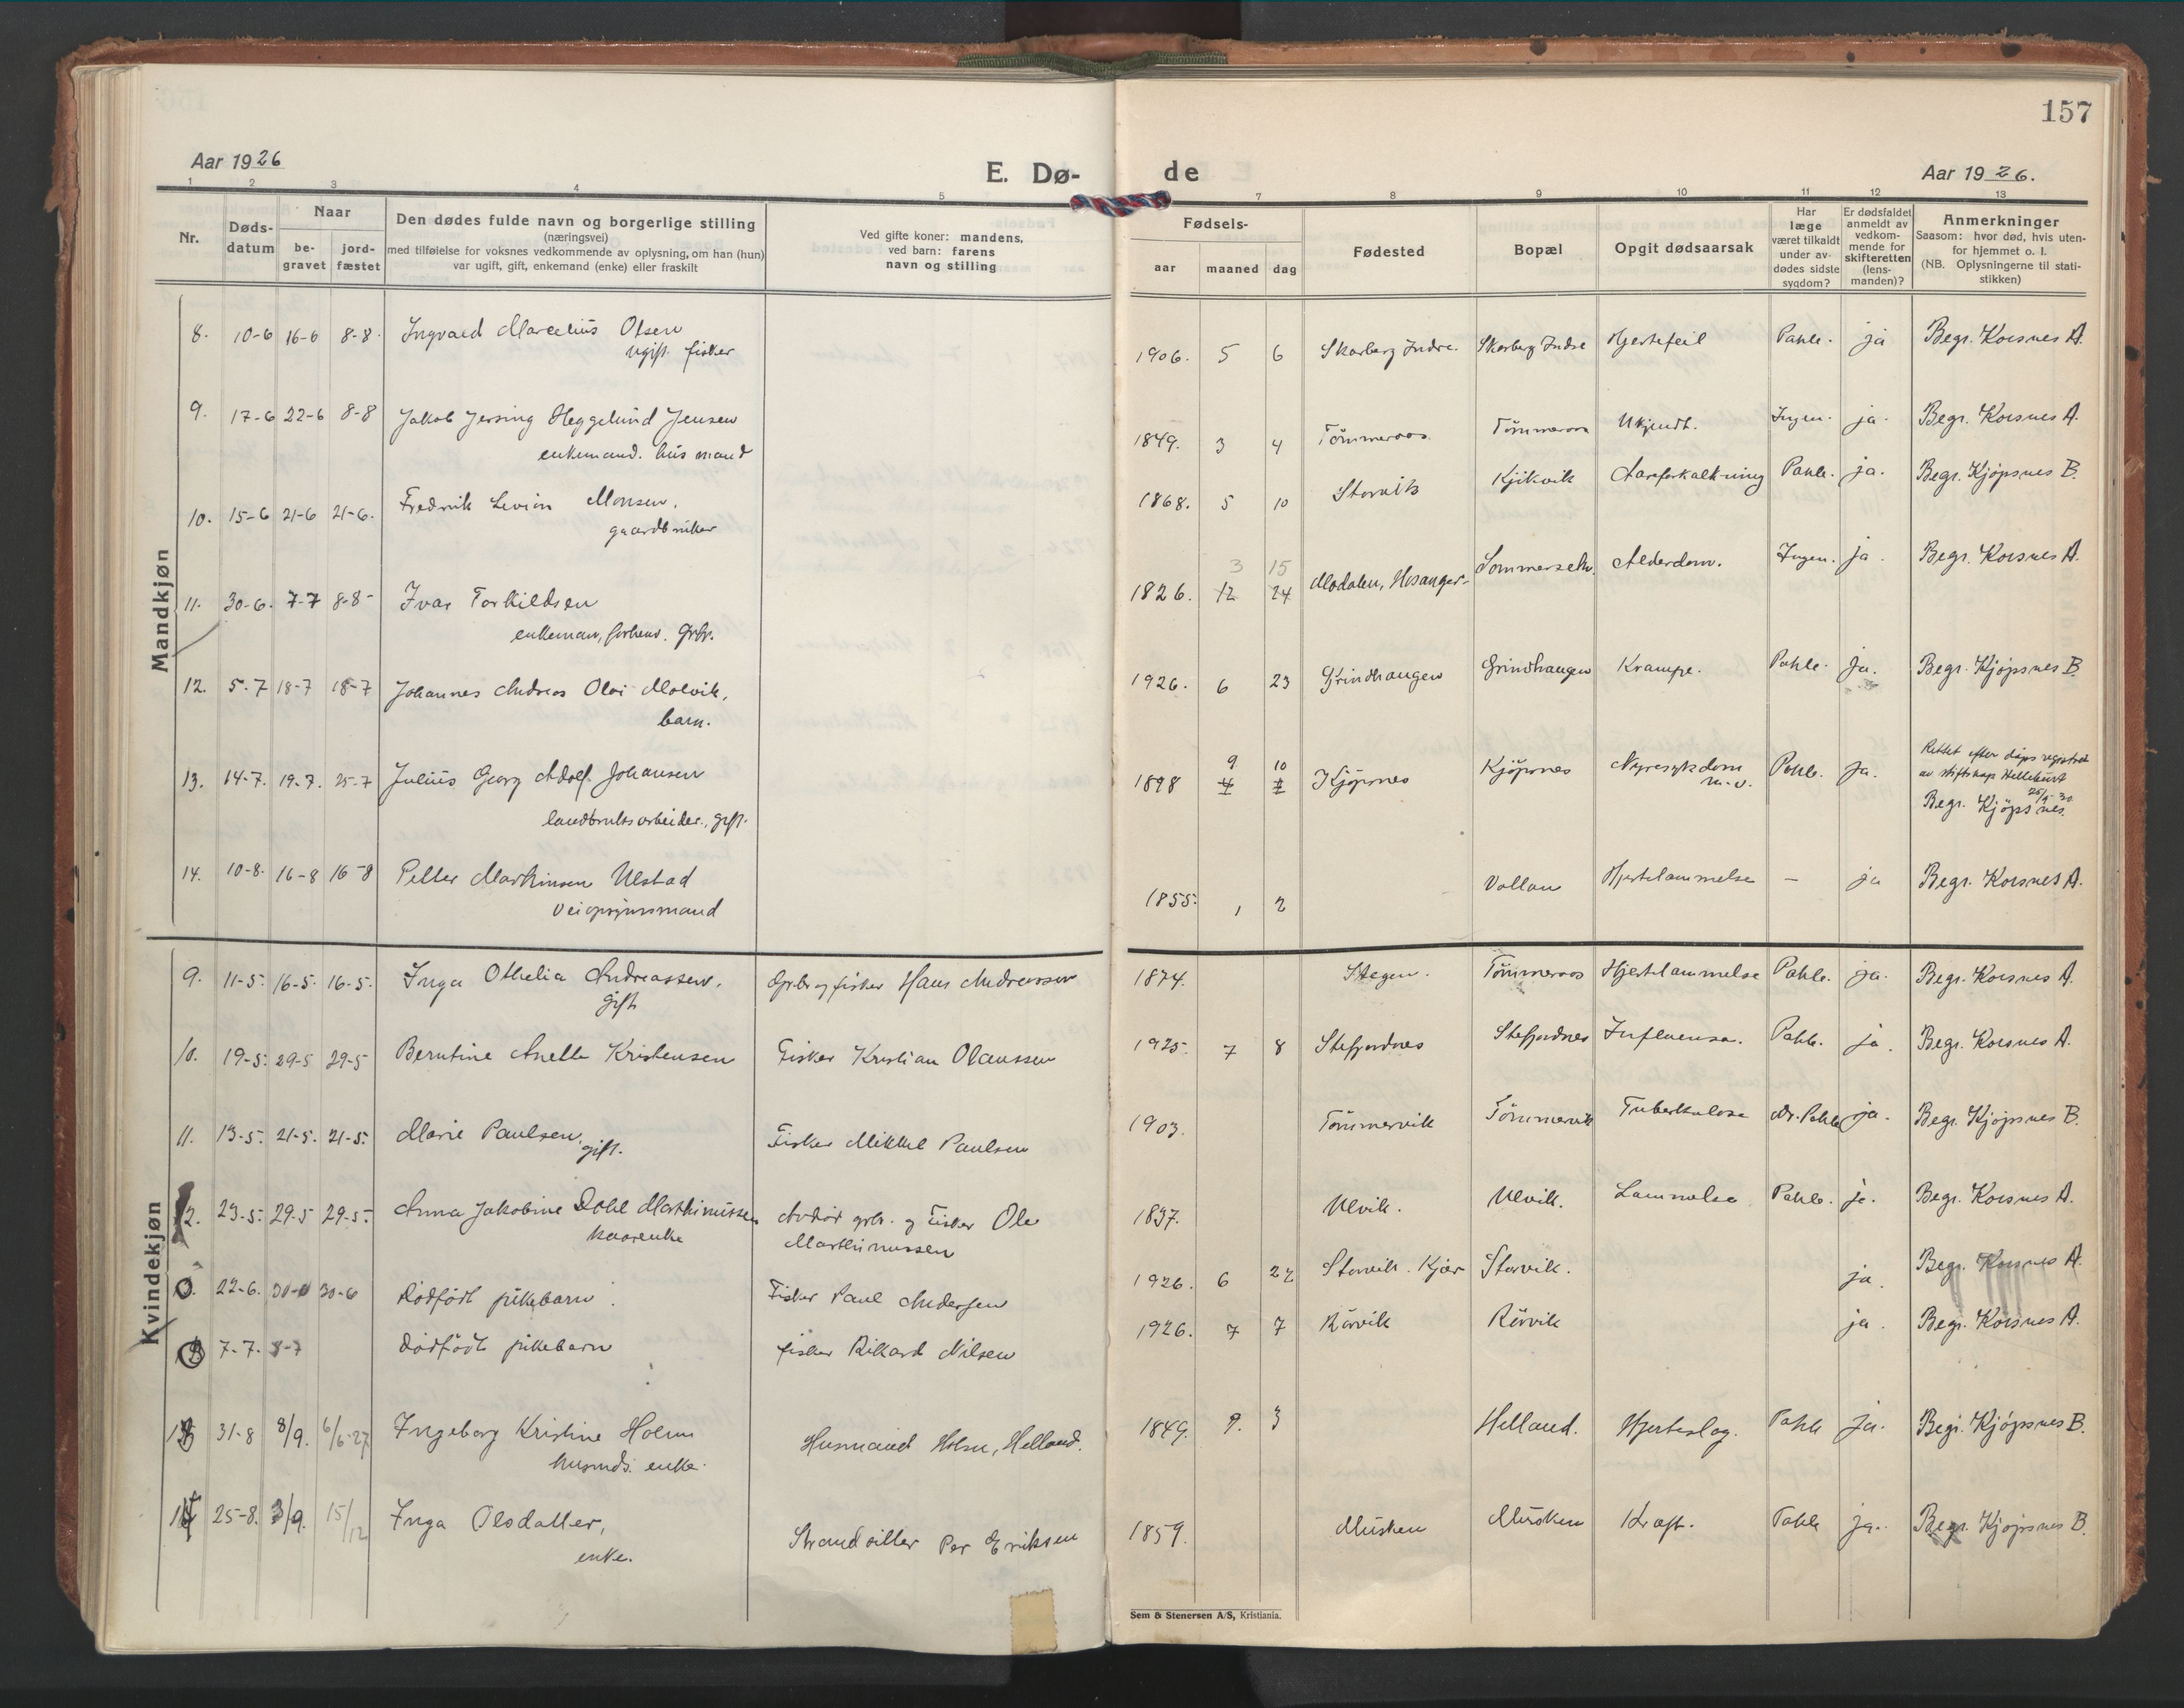 157
Aar 1926
E. Dø-
de
Aar 1926.
1 2 3 4 5 7 8 9 10 11 12 13
Nr.
Døds-
datum
Naar
be-
gravet
jord-
fæstet
Den dødes fulde navn og borgerlige stilling
(næringsvei)
med tilføielse for voksnes vedkommende av oplysning, om han (hun)
var ugift, gift, enkemand (enke) eller fraskilt
Ved gifte koner: mandens,
ved barn: farens
navn og stilling
Fødsels-
aar maaned dag
Fødested
Bopæl
Opgit dødsaarsak
Har
læge
været tilkaldt
under av-
dødes sidste
sygdom?
Er dødsfaldet
anmeldt av
vedkom-
mende for
skifteretten
(lens-
manden)?
Anmerkninger
Saasom: hvor død, hvis uten-
for hjemmet o. l.
(NB. Oplysningerne til stati-
stikken)
Mandkjøn
8. 10-6 16-6 8-8. Ingvald Marcelius Olsen 1906. 5 6 Skarberg Indre. Skarberg Indre Hjertefeil Pahle. ja Begr. Korsnes A.
ugift. fisker
9. 17-6 22-6 8-8 Jakob Jersing Heggelund Jensen 1849. 3 4 Tømmeraas. Tømmeraas Ukjendt. Ingen. ja. Begr. Korsnes A.
enkemand. husmand
10. 15-6 21-6 21-6. Fredrik Levion Monsen. 1868. 5 10 Storvik Kjikvik Aareforkalkning Pahle. ja. Begr. Kjøpsnes B.
gaardbruker
3 15
11. 30-6. 7-7 8-8- Ivar Torkildsen 1826. 12 24 Modalen, Hosanger Sommerset Alderdom. Ingen. ja. Begr. Korsnes A.
enkeman, forhenv. grbr.
12. 5-7 18-7 18-7 Johannes Andreas Olai Molvik, 1926. 6 23 Grindhaugen Grindhaugen Krampe. Pahle. ja. Begr. Kjøpsnes B.
barn.
9 10
Rettet efter dåps registret
av stiftskap Hellekurt
25/9-30
13. 14-7. 19-7. 25-7 Julius Georg Adolf Johansen 1898 4 Kjøpsnes Kjøpsnes Nyresykdom m.v. Pahle. ja. Begr. Kjøpsnes.
landbruksarbeider, gift.
14. 10-8. 16-8 16-8 Petter Markinsen Ulstad 1855. 1 2 Vollan Hjertelammelse — ja Begr. Korsnes A.
Veiopsynsmand
Kvindekjøn
9. 11-5. 16-5. 16-5. Inga Othelia Andreassen. Grbr og fisker Hans Andreassen 1874. Stegen. Tømmeraas Hjertelammelse Pahle. ja. Begr. Korsnes A.
gift
10. 19-5. 29-5 29-5 Berntine Anette Kristensen Fisker Kristian Olaussen 1925. 7 8 Stefjordnes Stefjordnes Influensa. Pahle. ja. Begr. Korsnes A.
11. 13-5. 21-5. 21-5. Marie Paulsen, gift. Fisker Mikkel Paulsen 1903. Tømmervik Tømmervik Tuberkulose Dr. Pahle ja. Begr. Kjøpsnes B.
12. 23-5. 29-5 29-5. Anna Jakobine Dahl Marthinussen Avdød grbr. og Fisker Ole 1837. Ulvik. Ulvik. Lammelse Pahle. ja. Begr. Korsnes A.
kaarenke
Marthinussen
22-6. 30-6 30-6 Dødfødt pikebarn. Fisker Paul Andersen 1926. 6 22 Storvik. Kjær Storvik. ja. Begr. Korsnes A.
7-7. 8-7 Dødfødt pikebarn fisker Rikard Nilsen 1926. 7 7 Rørvik Rørvik ja. Begr. Korsnes A.
13 31-8 8/9. 6/6-27 Ingeborg Kristine Holm Husmand Holm, Helland. 1849. 9. 3 Helland. Hjerteslag. Pahle ja. Begr. Kjøpsnes B.
husmds. enke.
14 25-8. 3/9. 15/12 Inga Olsdatter, Strandsitter Per Eriksen 1859. Musken Musken Kræft. Pahle ja. Begr. Kjøpsnes B.
enke.
Sem & Stenersen A/S, Kristiania.